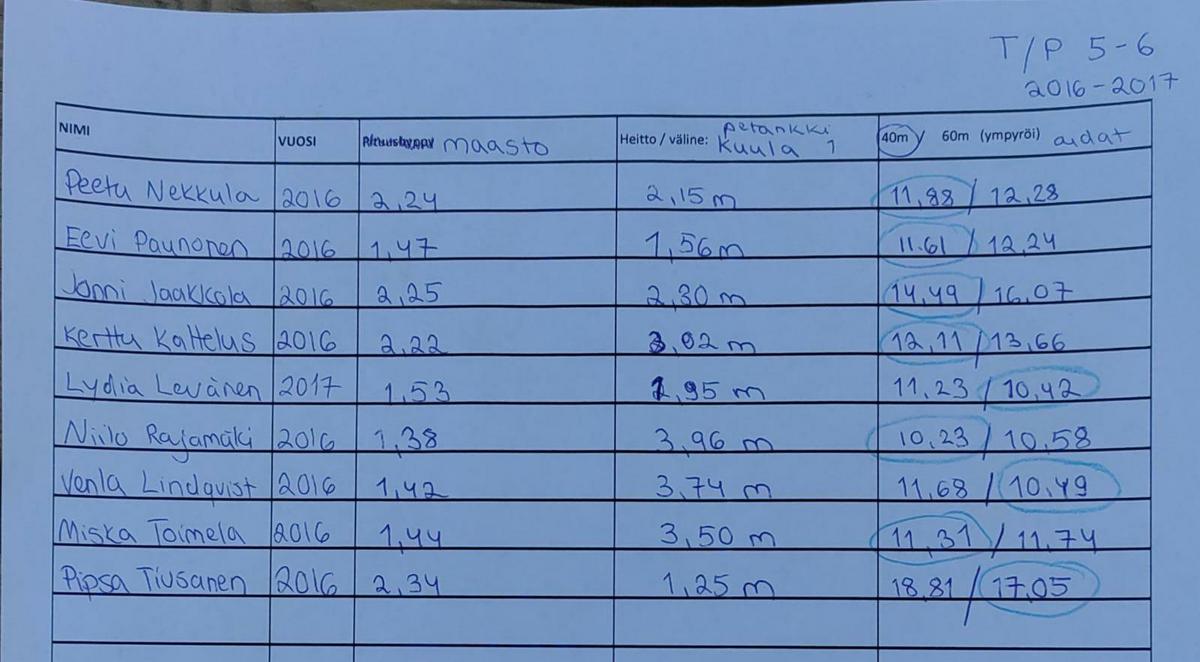 T/P 5-6
2016-2017
NIMI VUOSI maasto Heitto / väline: petankki kuula 1 40m / 60m (ympyröi) aidat
Peetu Nekkula 2016 2,24 2,15 m 11,88 / 12,28
Eevi Paunonen 2016 1,47 1,56 m 11.61 / 12,24
Jonni Jaakkola 2016 2,25 2,30 m 14,49 / 16,07
Kerttu Kaltelus 2016 2,22 3,02 m 12,11 / 13,66
Lydia Levänen 2017 1,53 1,95 m 11,23 / 10,42
Niilo Rajamäki 2016 1,38 3,96 m 10,23 / 10,58
Venla Lindqvist 2016 1,42 3,74 m 11,68 / 10,49
Miska Toimela 2016 1,44 3,50 m 11,31 / 11,74
Pipsa Tiusanen 2016 2,34 1,25 m 18,81 / 17,05